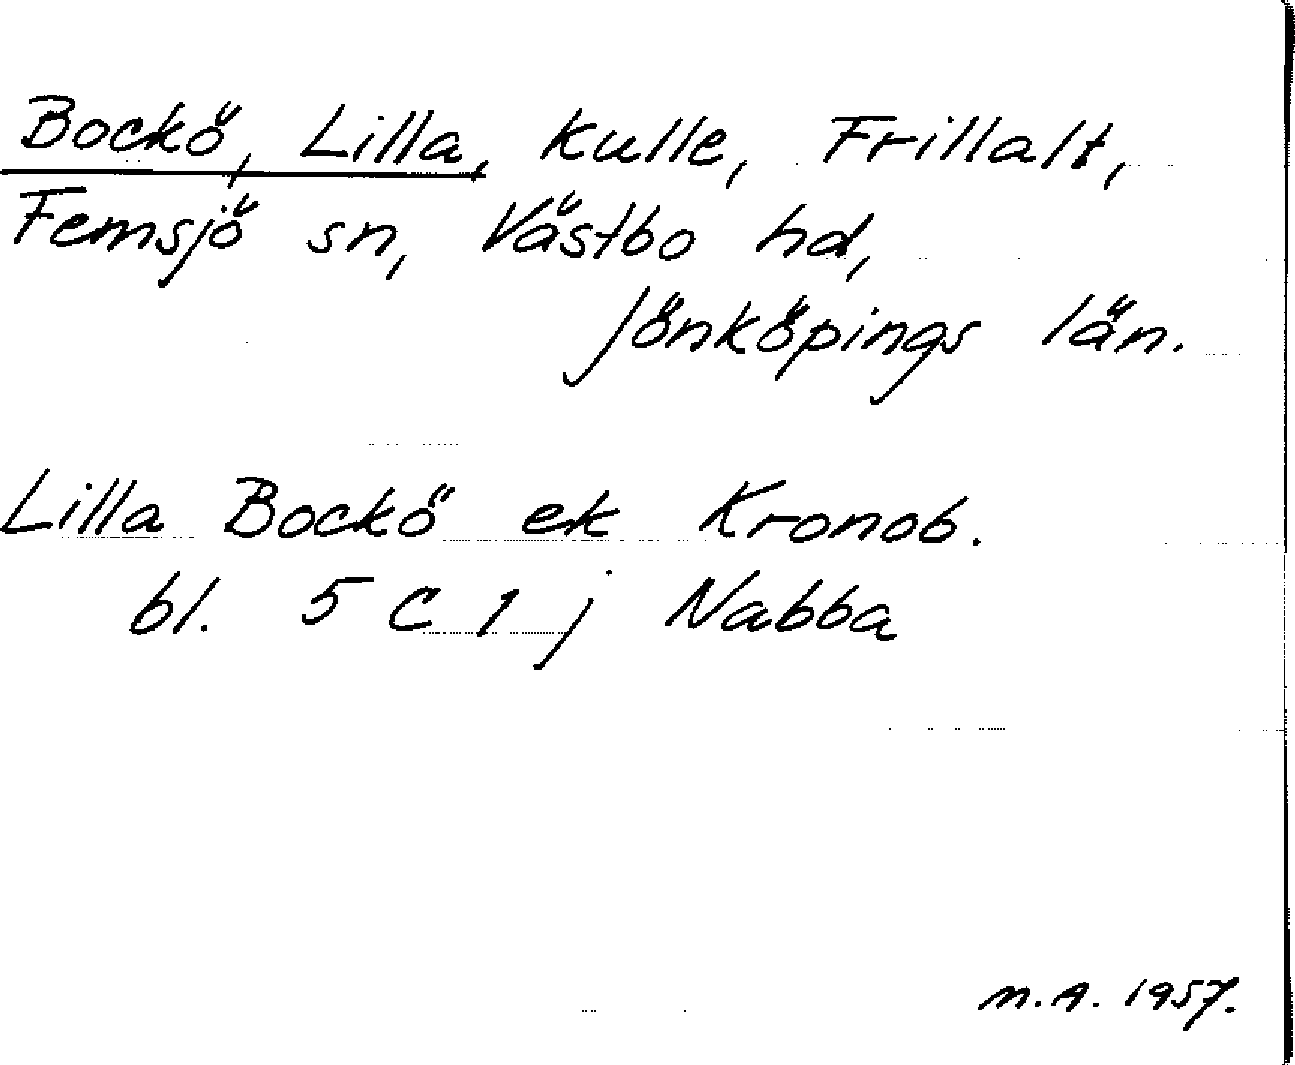 Bockö, Lilla, kulle, Frillalt,
Femsjö sn, Västbo hd,
Jönköpings län.
Lilla Bockö ek Kronob.
bl. 5 C 1 j Nabba
M.A. 1957.